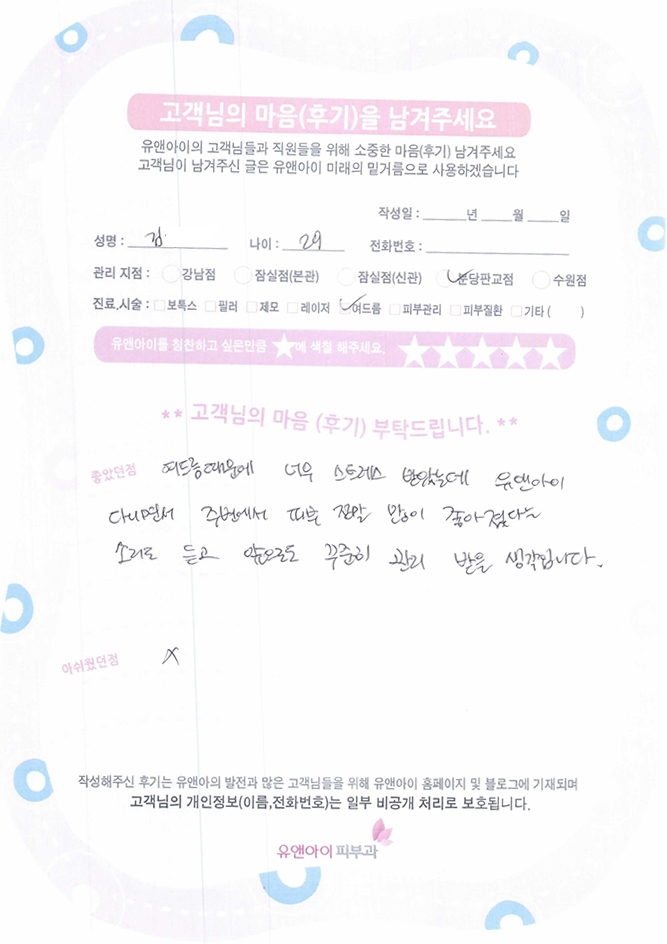 고객님의 마음(후기)을 남겨주세요
유앤아이의 고객님들과 직원들을 위해 소중한 마음(후기) 남겨주세요
고객님이 남겨주신 글은 유앤아이 미래의 밑거름으로 사용하겠습니다
작성일 : ______년 ____월 ____일
성명 : 김 나이 : 29 전화번호 :
관리 지점 : 강남점 잠실점(본관) 잠실점(신관) 분당판교점 수원점
진료,시술 : 보톡스 필러 제모 레이저 여드름 피부관리 피부질환 기타 ( )
유앤아이를 칭찬하고 싶은만큼 ★에 색칠 해주세요. ★★★★★
** 고객님의 마음 (후기) 부탁드립니다. **
좋았던점 여드름때문에 너무 스트레스 받았는데 유앤아이
다니면서 주변에서 피부 정말 많이 좋아졌다는
소리도 듣고 앞으로도 꾸준히 관리 받을 생각입니다.
아쉬웠던점 X
작성해주신 후기는 유앤아의 발전과 많은 고객님들을 위해 유앤아이 홈페이지 및 블로그에 기재되며
고객님의 개인정보(이름,전화번호)는 일부 비공개 처리로 보호됩니다.
유앤아이 피부과